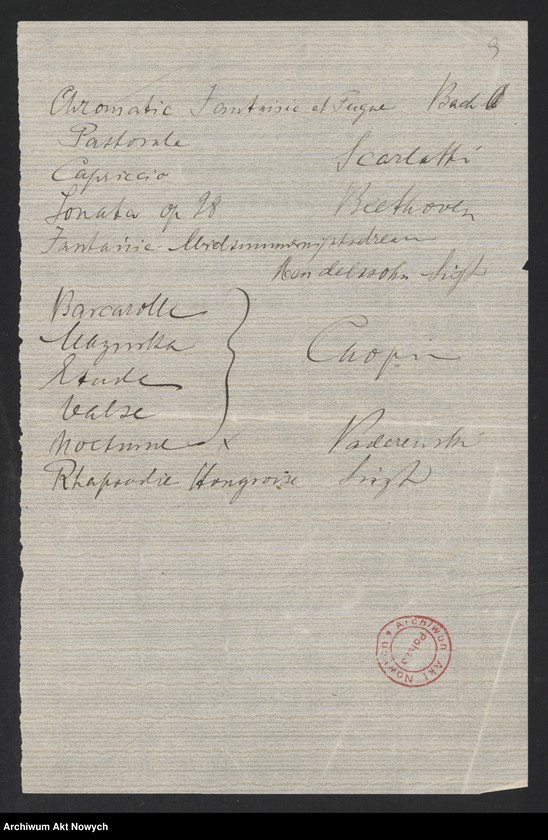 3
Chromatic Fantaisie et Fugue Bach
Pastorale
Capriccio Scarlatti
Sonata op 28 Beethoven
Fantaisie Midsummernightsdream
Mendelssohn Liszt
Barcarolle
Mazurka
Etude Chopin
Valse
Nocturne x Paderewski
Rhapsodie Hongroise Liszt
Archiwum Akt Nowych
Polska
Archiwum Akt Nowych